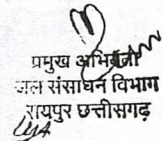 प्रमुख अभियंता
जल संसाधन विभाग
रायपुर छत्तीसगढ़